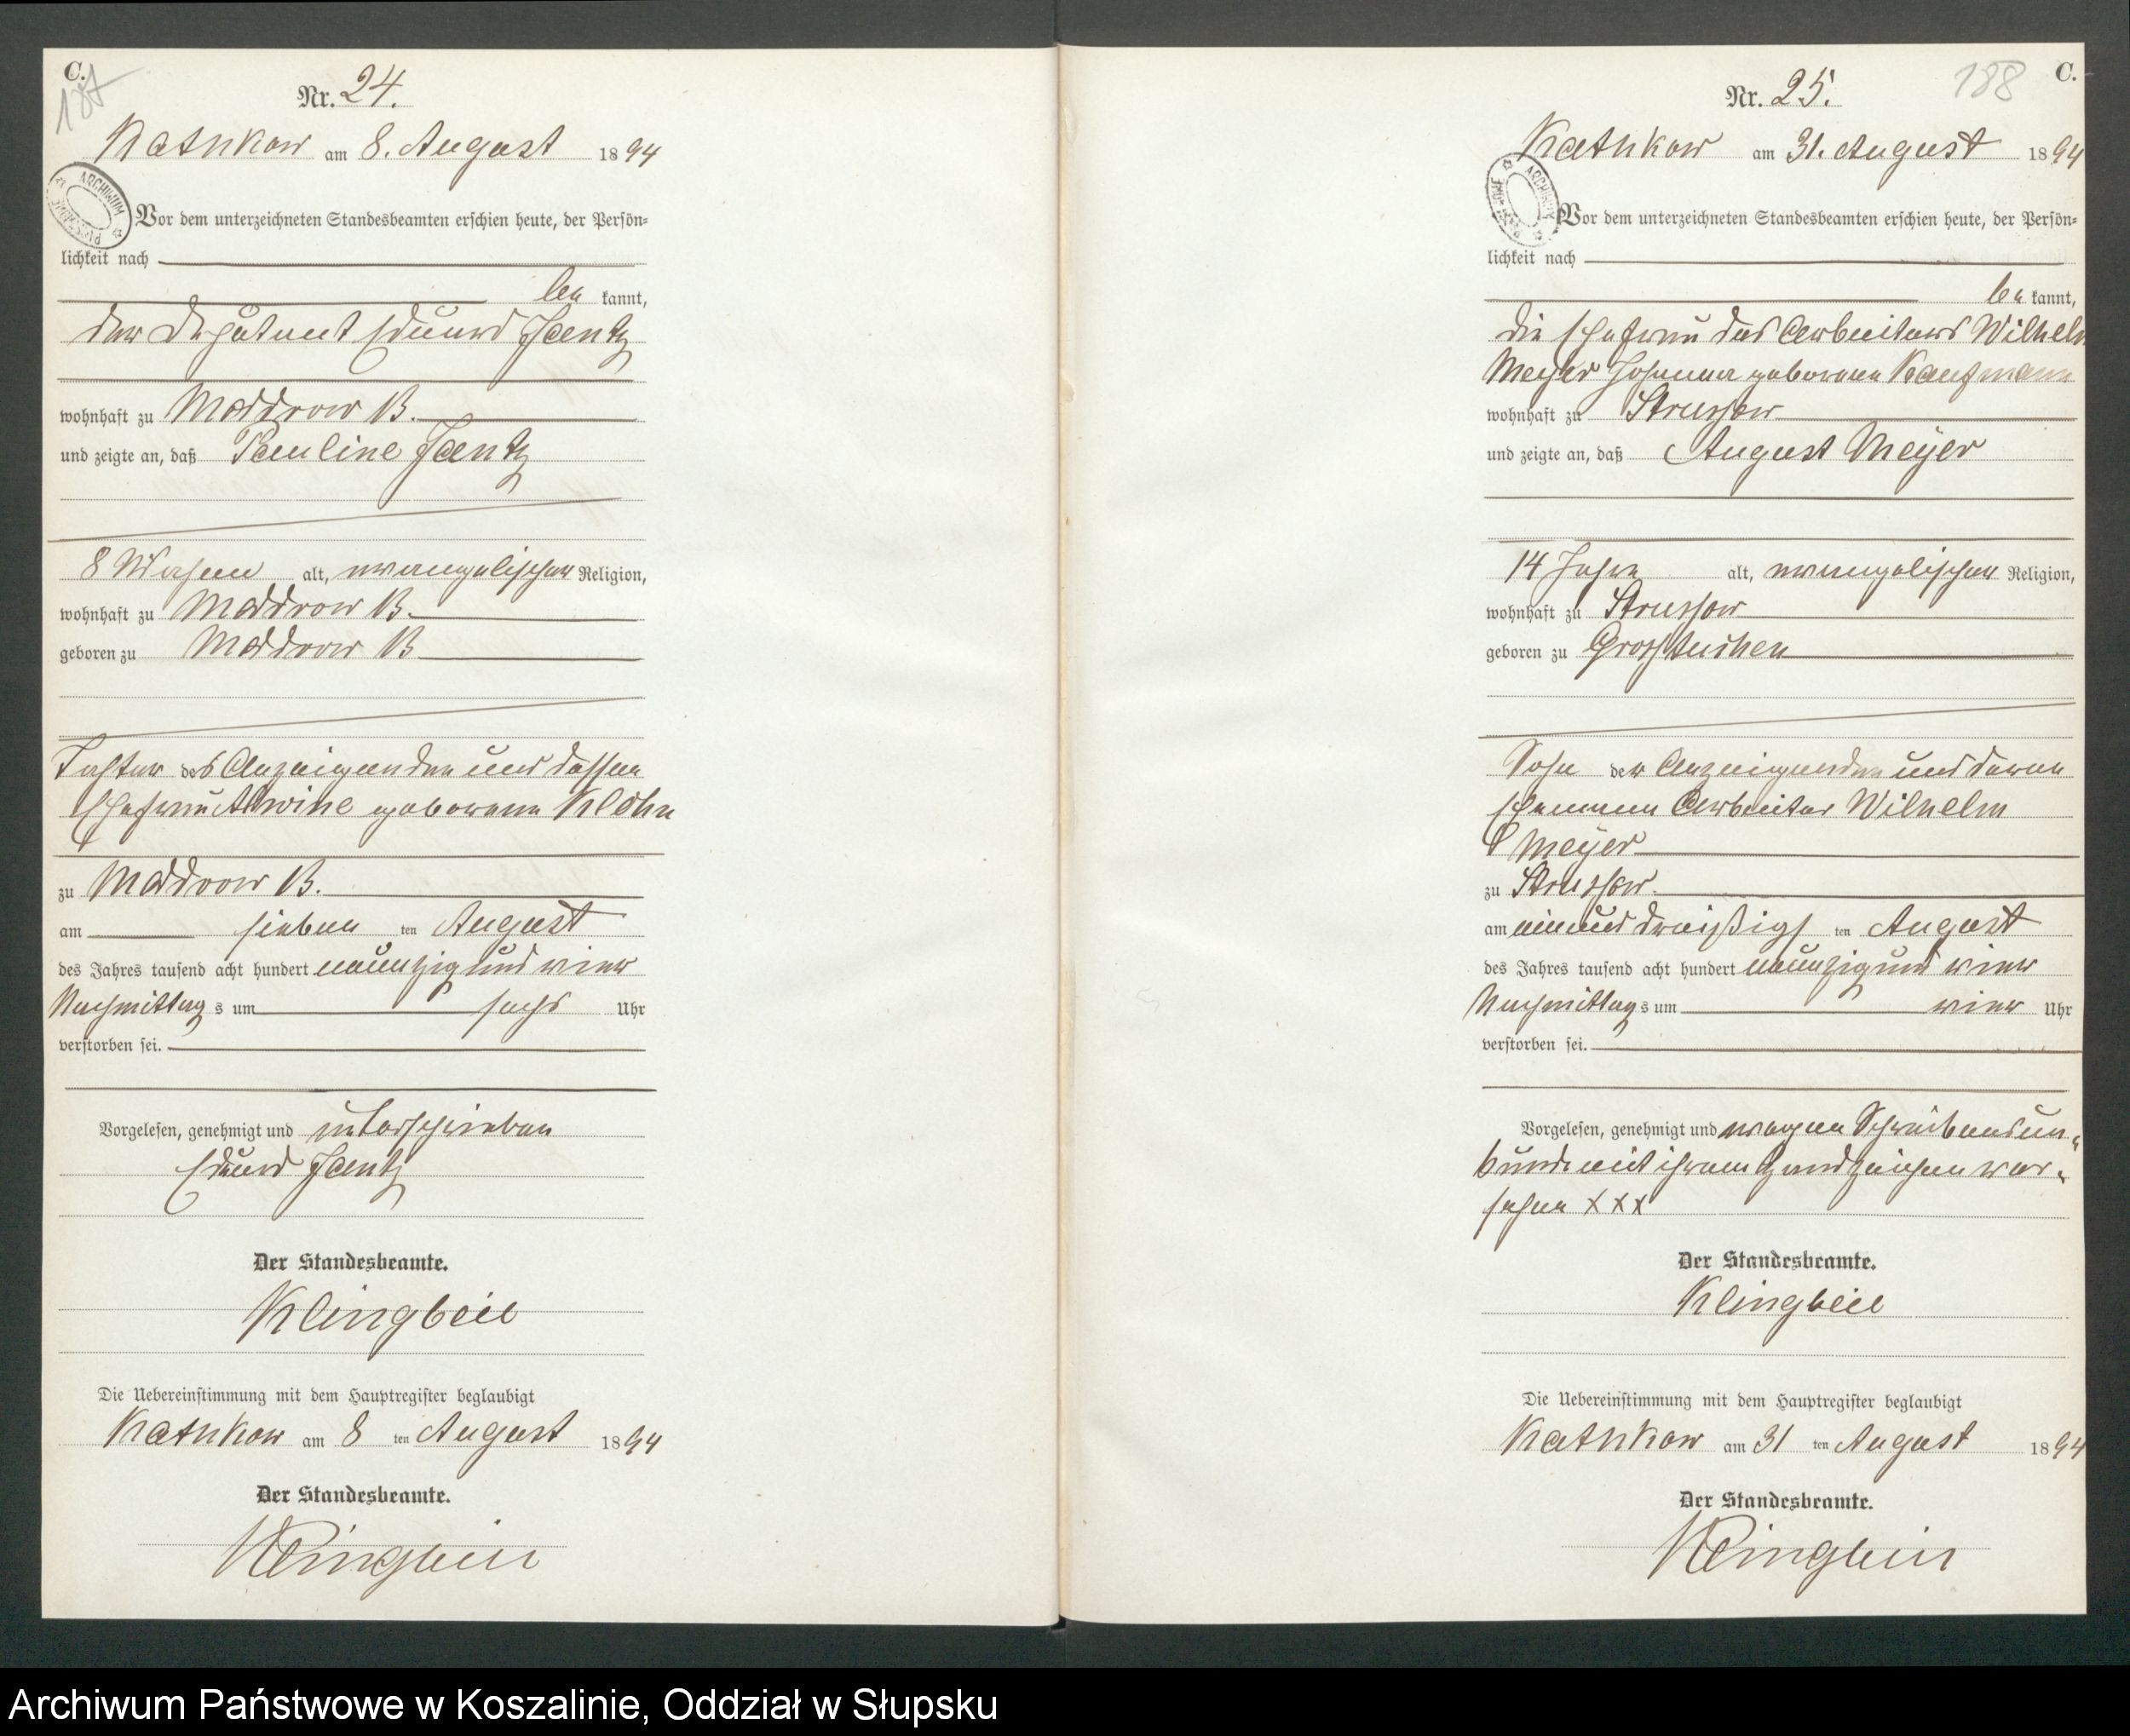 C.
187
Nr. 24.
Kathkow am 8. August 1894
Vor dem unterzeichneten Standesbeamten erschien heute, der Persön-
lichkeit nach
be kannt,
der Deputant Eduard Jantz
wohnhaft zu Moddrow B.
und zeigte an, daß Pauline Jantz
8 Wochen alt, evangelischer Religion,
wohnhaft zu Moddrow B.
geboren zu Moddrow B.
Tochter des Anzeigenden und dessen
Ehefrau Alwine geborene Klohn
zu Moddrow B.
am sieben ten August
des Jahres tausend acht hundert neunzig und vier
Nachmittag s um sechs Uhr
verstorben sei.
Vorgelesen, genehmigt und unterschrieben
Eduard Jantz
Der Standesbeamte.
Klingbeil
Die Uebereinstimmung mit dem Hauptregister beglaubigt
Kathkow am 8 ten August 1894
Der Standesbeamte.
Klingbeil
188
C.
Nr. 25.
Kathkow am 31. August 1894
Vor dem unterzeichneten Standesbeamten erschien heute, der Persön-
lichkeit nach
be kannt,
die Ehefrau des Arbeiters Wilhelm
Meyer Johanna geborene Kaufmann
wohnhaft zu Strussow
und zeigte an, daß August Meyer
14 Jahre alt, evangelischer Religion,
wohnhaft zu Strussow
geboren zu Grosstuchen
Sohn der Anzeigenden und deren
Ehemann Arbeiter Wilhelm
Meyer
zu Strussow.
am einund dreißigs ten August
des Jahres tausend acht hundert neunzig und vier
Nachmittag s um vier Uhr
verstorben sei.
Vorgelesen, genehmigt und wegen Schreibensun-
kunde mit ihrem Handzeichen ver-
sehen XXX
Der Standesbeamte.
Klingbeil
Die Uebereinstimmung mit dem Hauptregister beglaubigt
Kathkow am 31 ten August 1894
Der Standesbeamte.
Klingbeil
Archiwum Państwowe w Koszalinie, Oddział w Słupsku